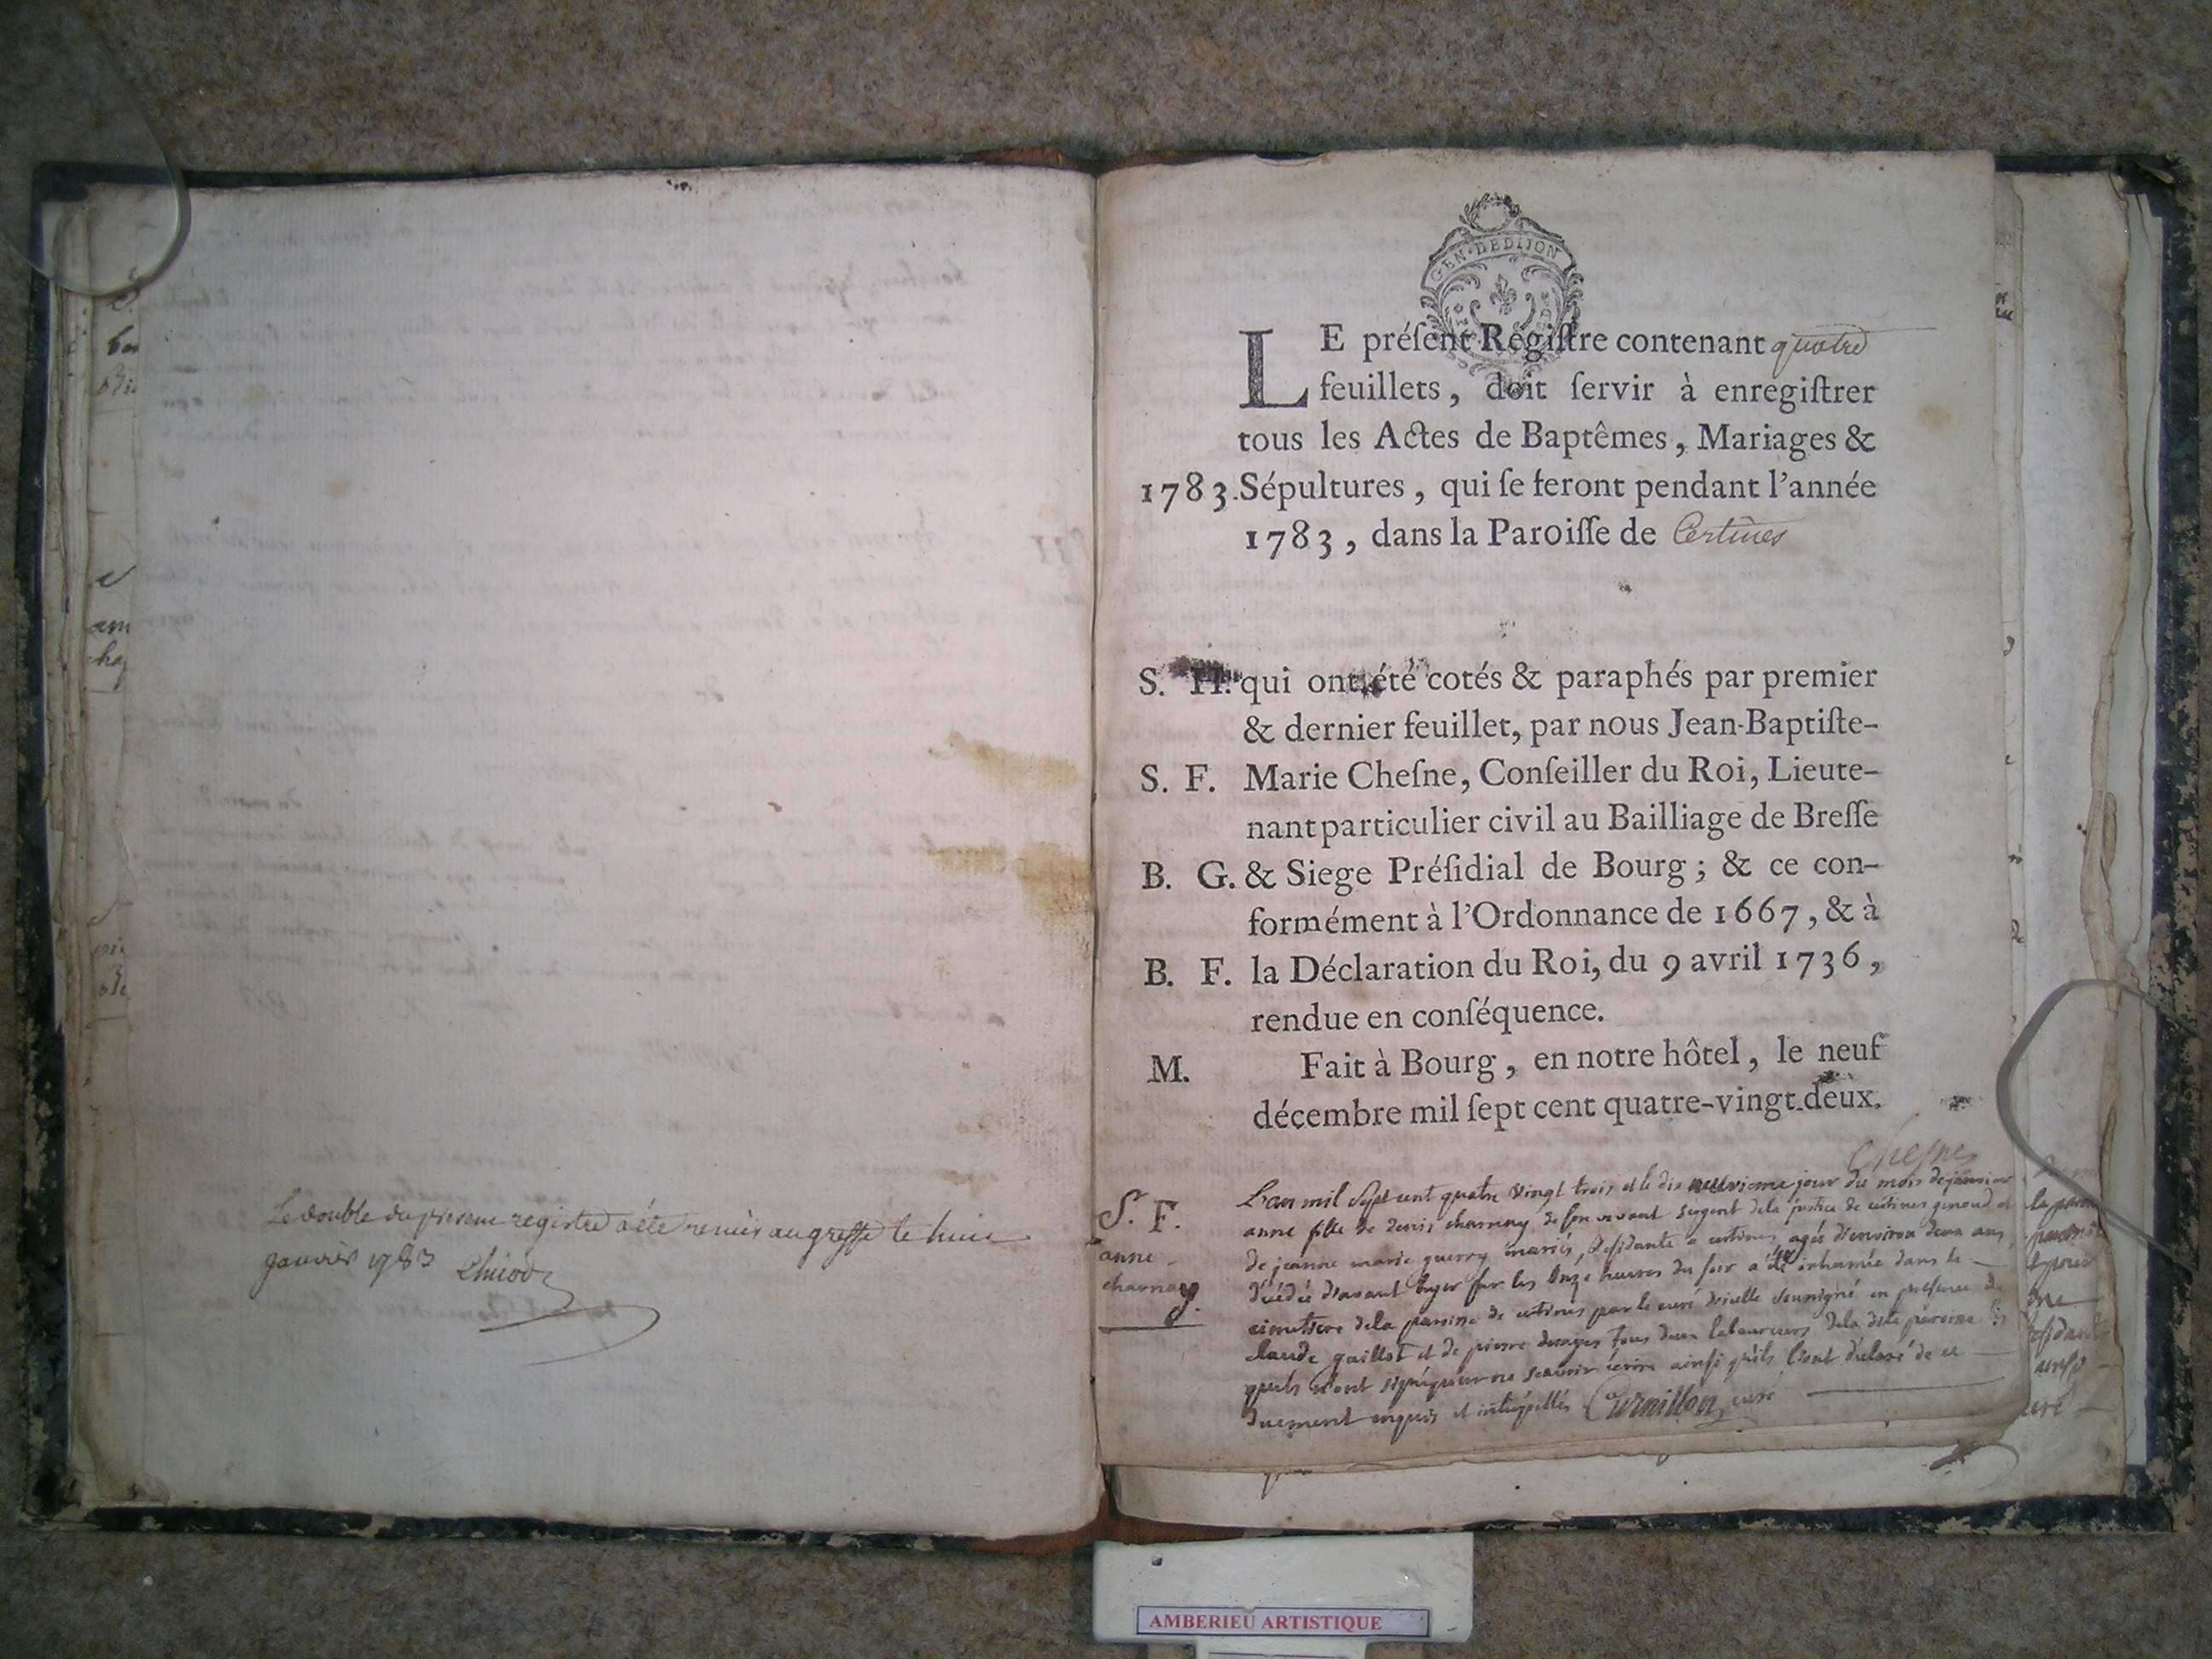 Le double du present registre a été remis au greffe le huit
janvier 1783
GEN·DEDIJON
LE préſent Regiſtre contenant quatre
feuillets, doit ſervir à enregiſtrer
tous les Actes de Baptêmes, Mariages &
1783. Sépultures, qui ſe feront pendant l'année
1783, dans la Paroiſſe de Certines
S. H. qui ont été cotés & paraphés par premier
& dernier feuillet, par nous Jean-Baptiſte-
S. F. Marie Cheſne, Conſeiller du Roi, Lieute-
nant particulier civil au Bailliage de Breſſe
B. G. & Siege Préſidial de Bourg; & ce con-
formément à l'Ordonnance de 1667, & à
B. F. la Déclaration du Roi, du 9 avril 1736,
rendue en conſéquence.
M. Fait à Bourg, en notre hôtel, le neuf
décembre mil ſept cent quatre-vingt-deux.
Chesne
S. F.
anne
charnay
L'an mil sept cent quatre vingt trois et le dix neuvieme jour du mois de janvier
anne fille de denis charnay de son vivant sergent de la justice de certines et
de jeanne marie guerry mariés, residante a certines agée d'environ deux ans
décédée d'avant hyer sur les onze heures du soir a été inhumée dans le
cimetiere de la paroisse de certines par le curé d'icelle soussigné en presence de
claude guillot et de pierre tous deux laboureurs de la dite paroisse
qui n'ont signé pour ne scavoir écrire ainsi qu'ils l'ont déclaré de ce
duement enquis et interpellés Curnillon curé
AMBERIEU ARTISTIQUE